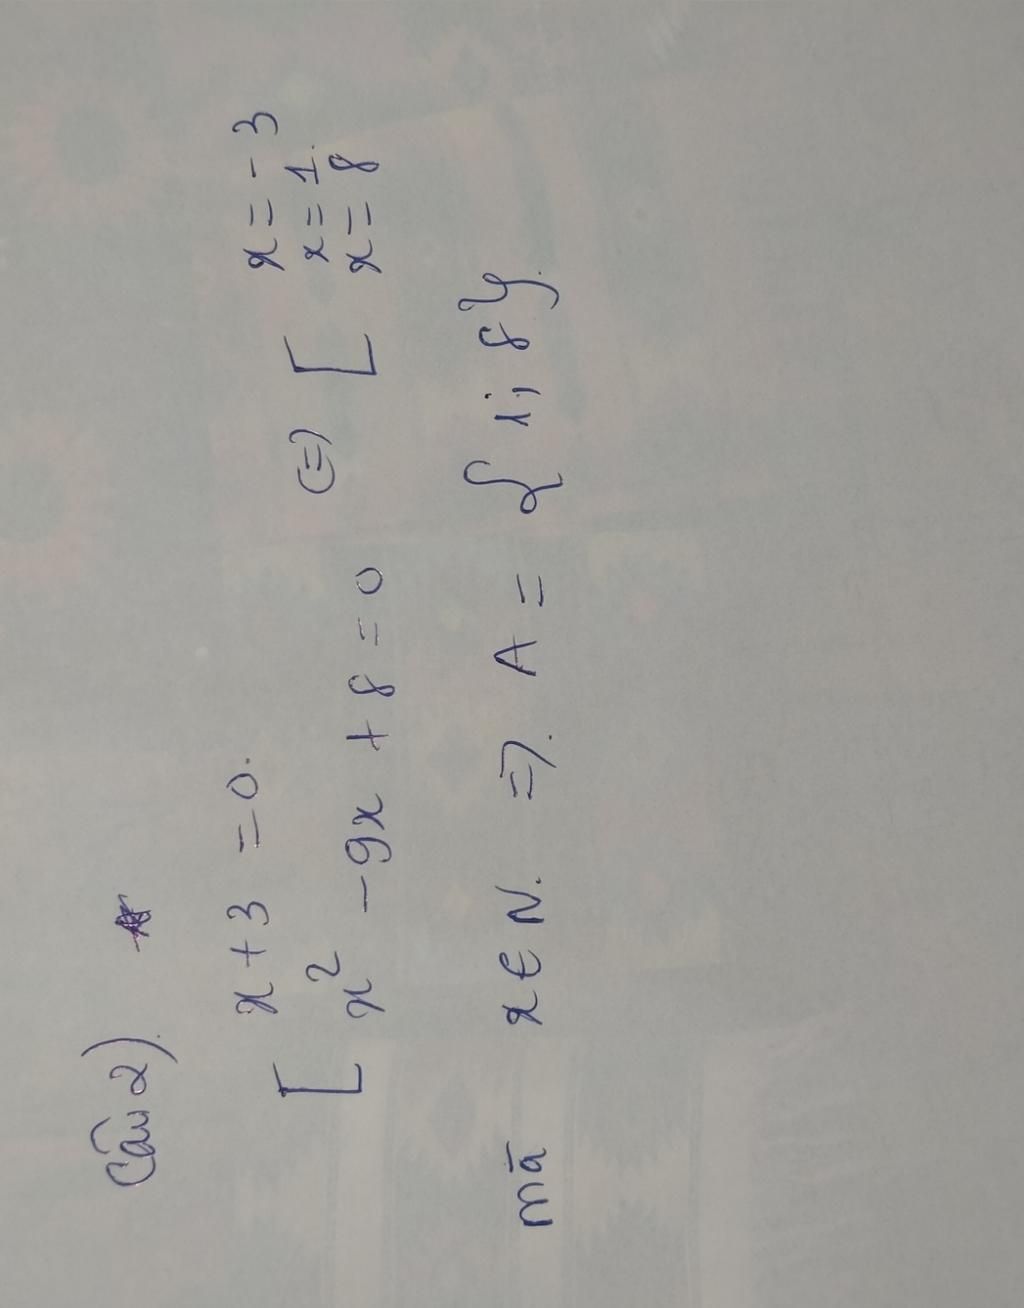 Câu 2).
x + 3 = 0.
x² - 9x + 8 = 0
(=)
x = - 3
x = 1.
x = 8
mà x ∈ N. =). A = { 1; 8 }.